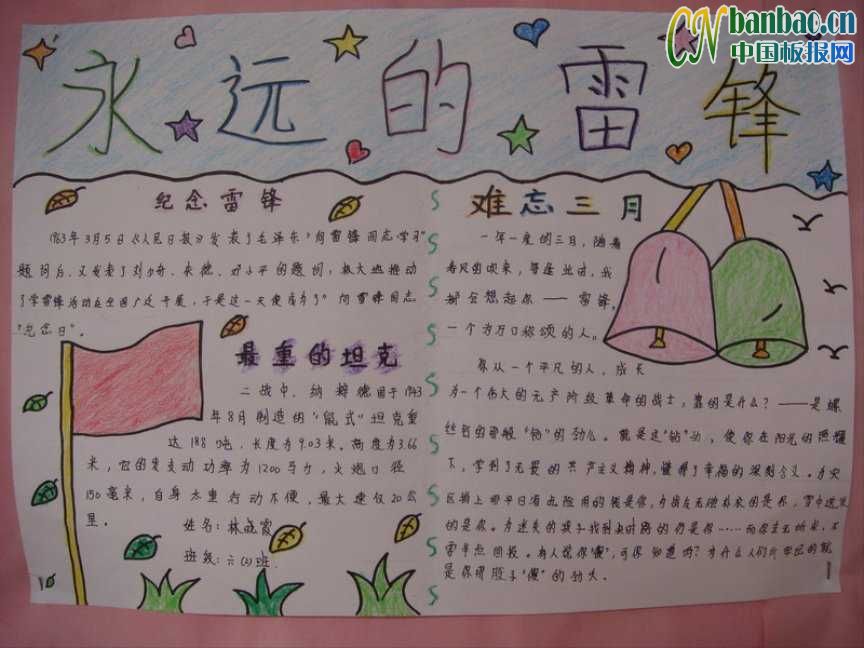 CN banbao.cn
中国板报网
永远的雷锋
纪念雷锋
1963年3月5日《人民日报》发表了毛泽东"向雷锋同志学习"
题词后，又发表了刘少奇、朱德、邓小平的题词，极大地推动
了学雷锋活动在全国广泛开展，于是这一天便定为了"向雷锋同志
"纪念日"。
最重的坦克
二战中，纳粹德国于1943
年8月制造的"鼠式"坦克重
达188吨，长度为9.03米。高度为3.66
米，它的发支动功率为1200马力，火炮口径
150毫米，自身太重行动不便，最大速仅20公
里。
姓名：林晓霞
班级：六(2)班
难忘三月
一年一度的三月，随着
春风的吹来，每逢此时，我
都会想起你——雷锋，
一个为万口称颂的人。
你从一个平凡的人，成长
为一个伟大的无产阶级革命的战士，靠的是什么？——是螺
丝钉的那般"钻"的劲儿。就是这"钻"劲，使你在阳光的照耀
下，学到了无畏的共产主义精神，懂得了幸福的深刻含义。为灾
区捐上
的是你。为迷失的孩子找到
雷半点回报。有人说你"傻"，可你知道吗？为什么人们
是你那股子"傻"的劲头。